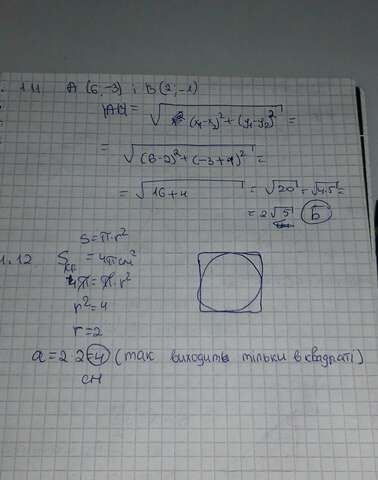 1.11 A (6; -3) i B(2; -1)
|AB| = √(x₁-x₂)²+(y₁-y₂)² =
= √(6-2)²+(-3+1)² =
= √16+4 = √20 = √4·5 =
= 2√5 Б
S=π·r²
1.12 Sкр = 4π см²
4π = π·r²
r²=4
r=2
a=2·2=4 (так виходить тільки в квадраті)
см